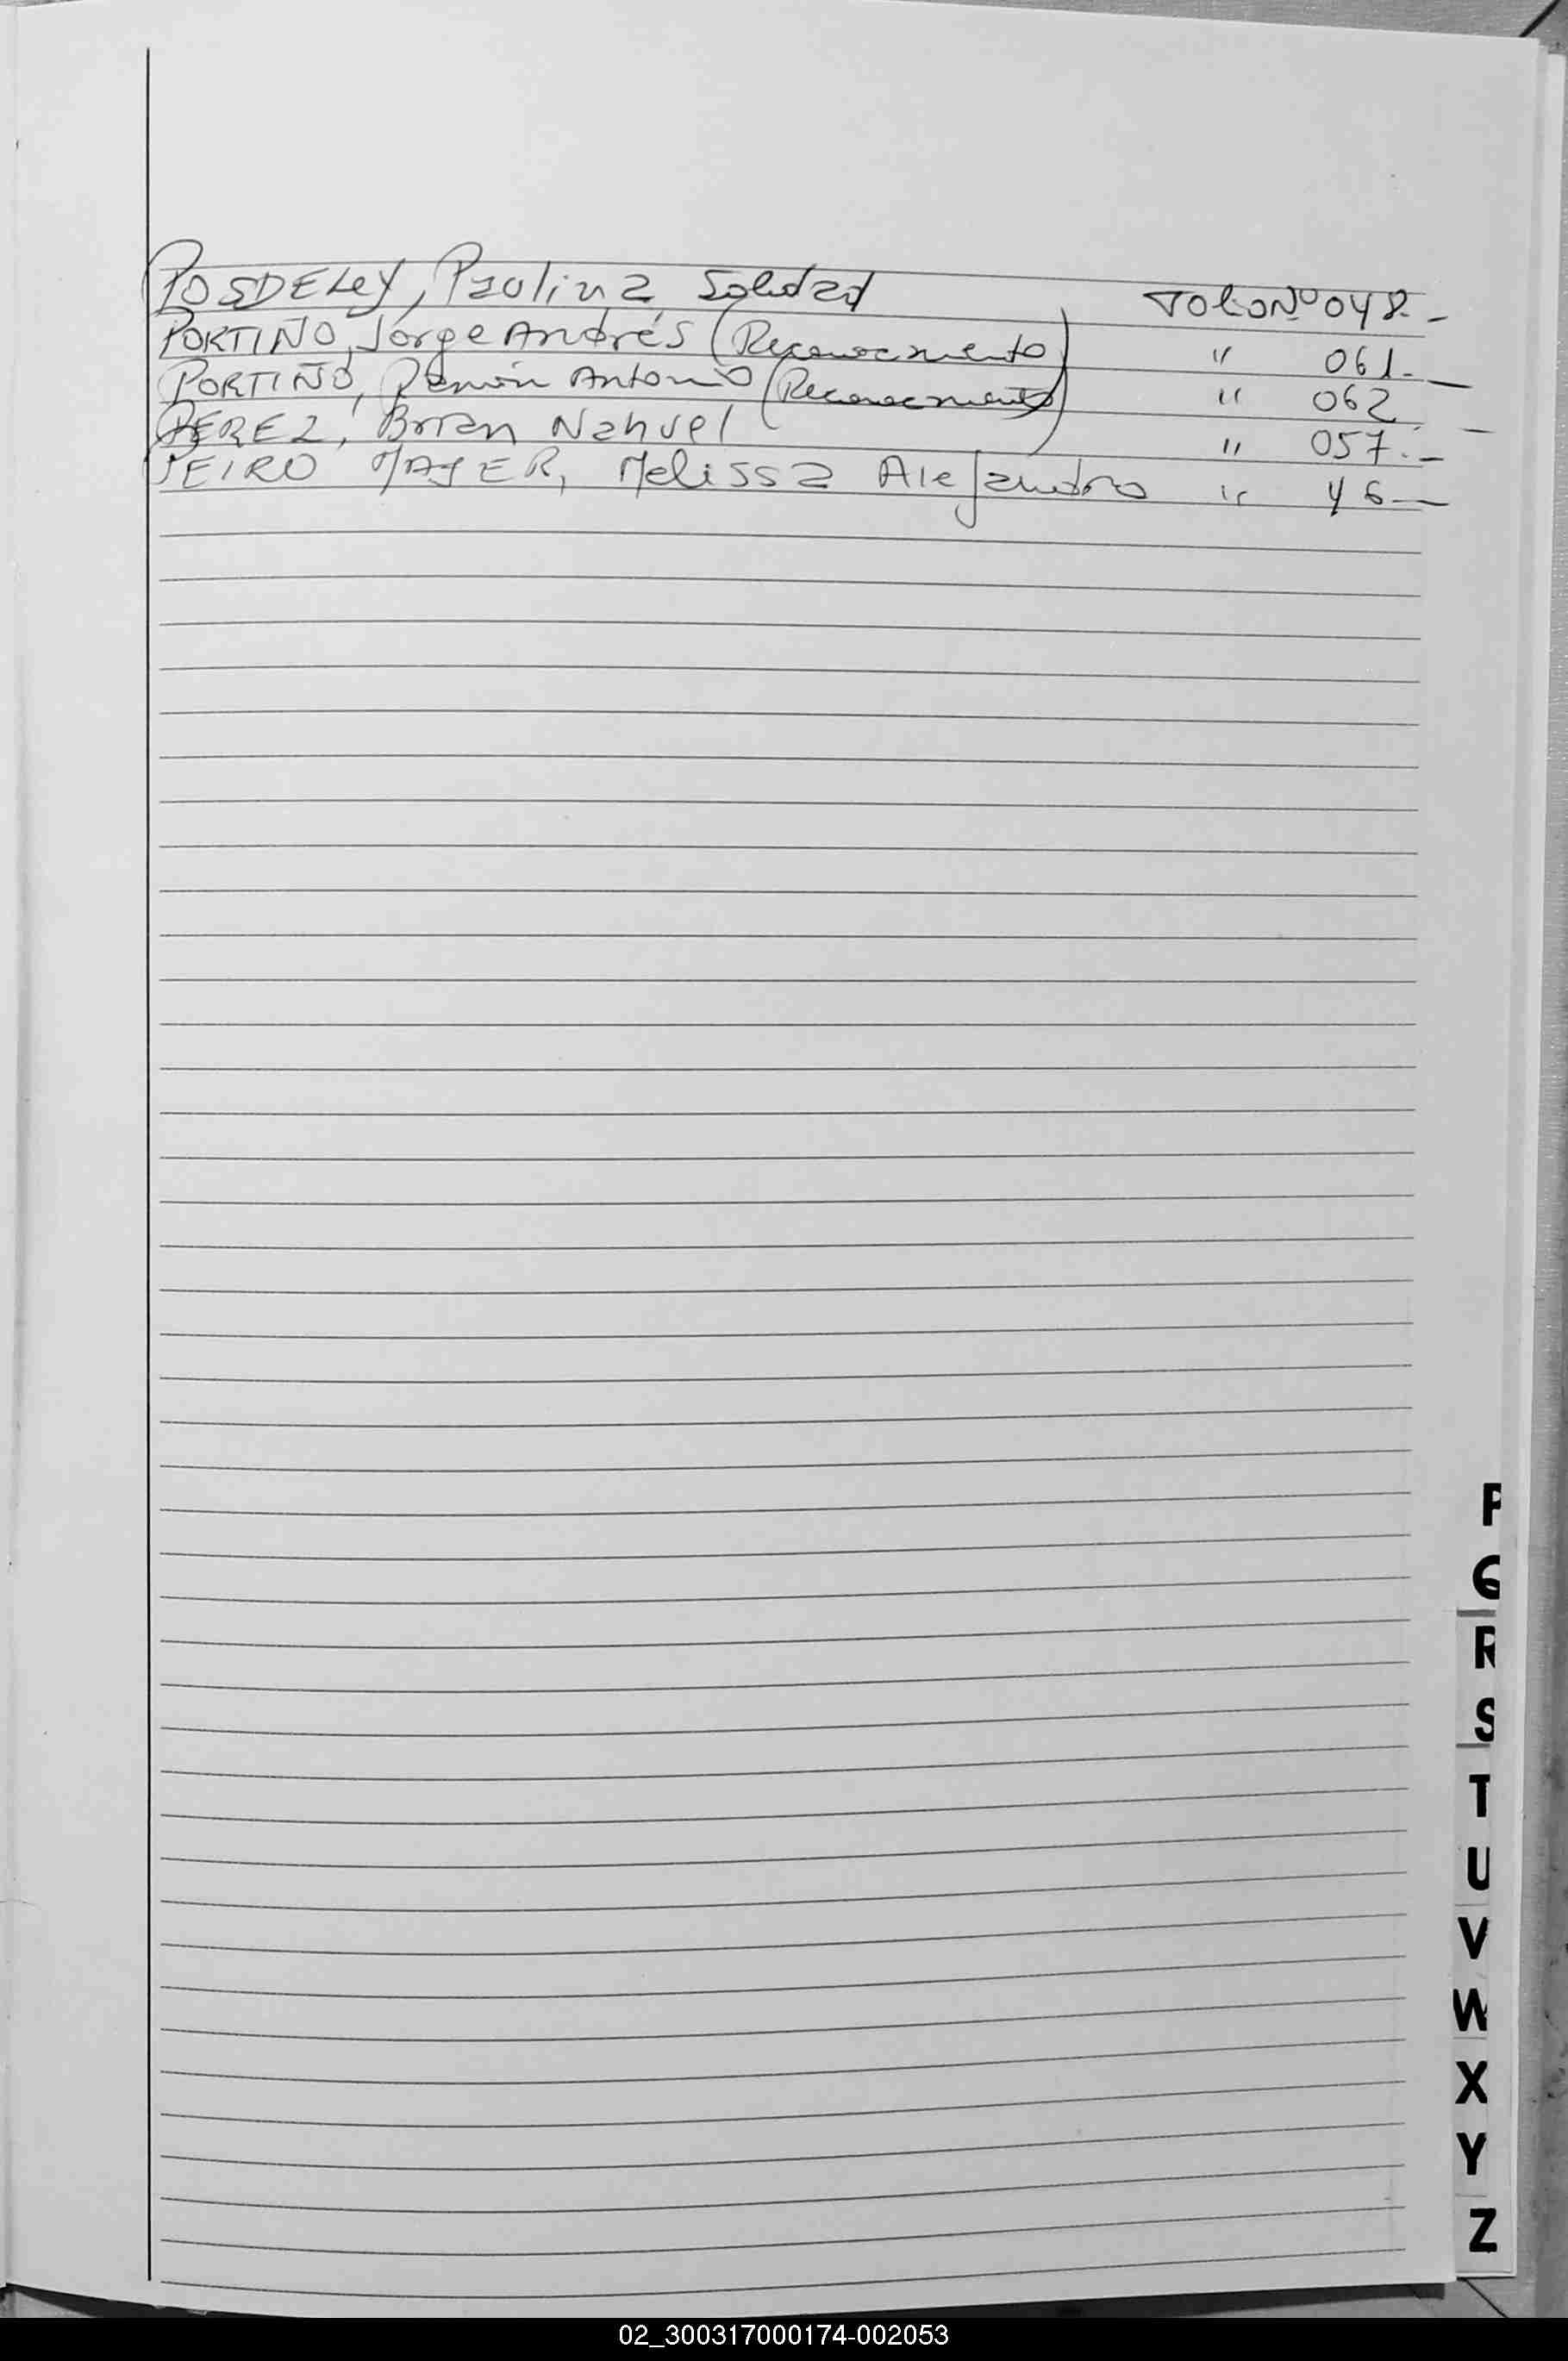 POSDELEY, Paolina Soledad FOLIO Nº 048.-
PORTIÑO, Jorge Andrés (Reconocimiento) " 061.-
PORTIÑO, Ramón Antonio (Reconocimiento) " 062.-
PEREZ, Brian Nahuel " 057.-
PEIRO MAJER, Melissa Alejandra " 46.-
P
Q
R
S
T
U
V
W
X
Y
Z
02_300317000174-002053